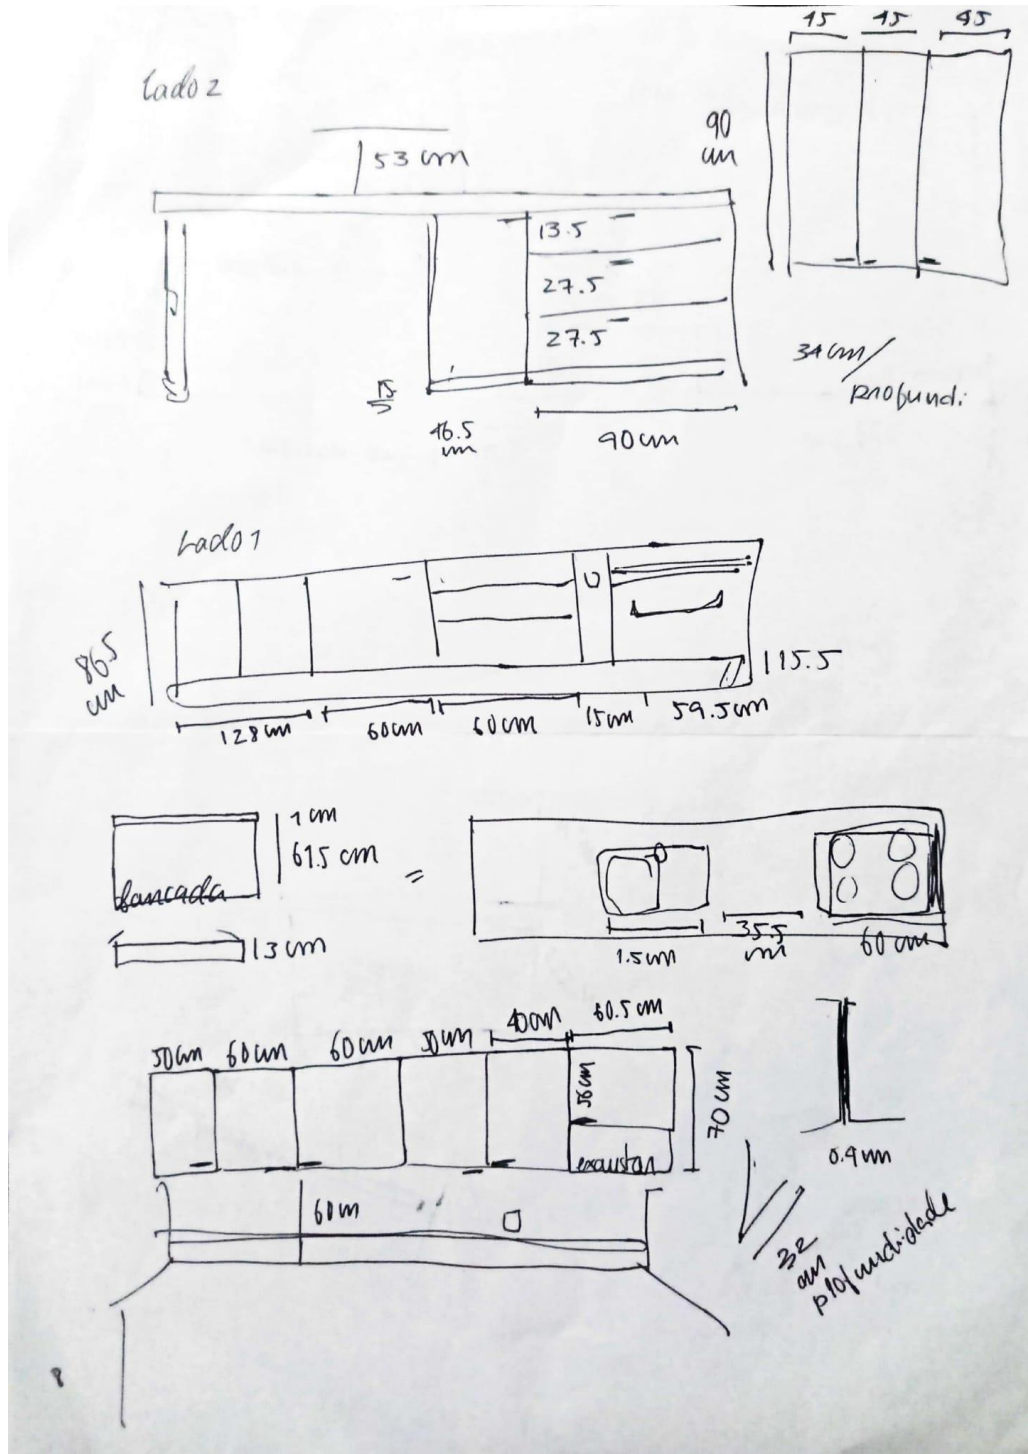 45 45 45
Lado 2
90
cm
53 cm
13.5
27.5
27.5
34 cm/
profundi.
15
46.5
cm
90cm
Lado 1
86.5
cm
15.5
128 cm
60cm
60cm
15cm
59.5cm
1 cm
61.5 cm
bancada
=
13cm
1.5cm
35.5
cm
60cm
50cm 60cm 60cm 50cm 40cm 60.5cm
56cm
70cm
exaustor
0.4cm
60cm
32
cm
profundidade